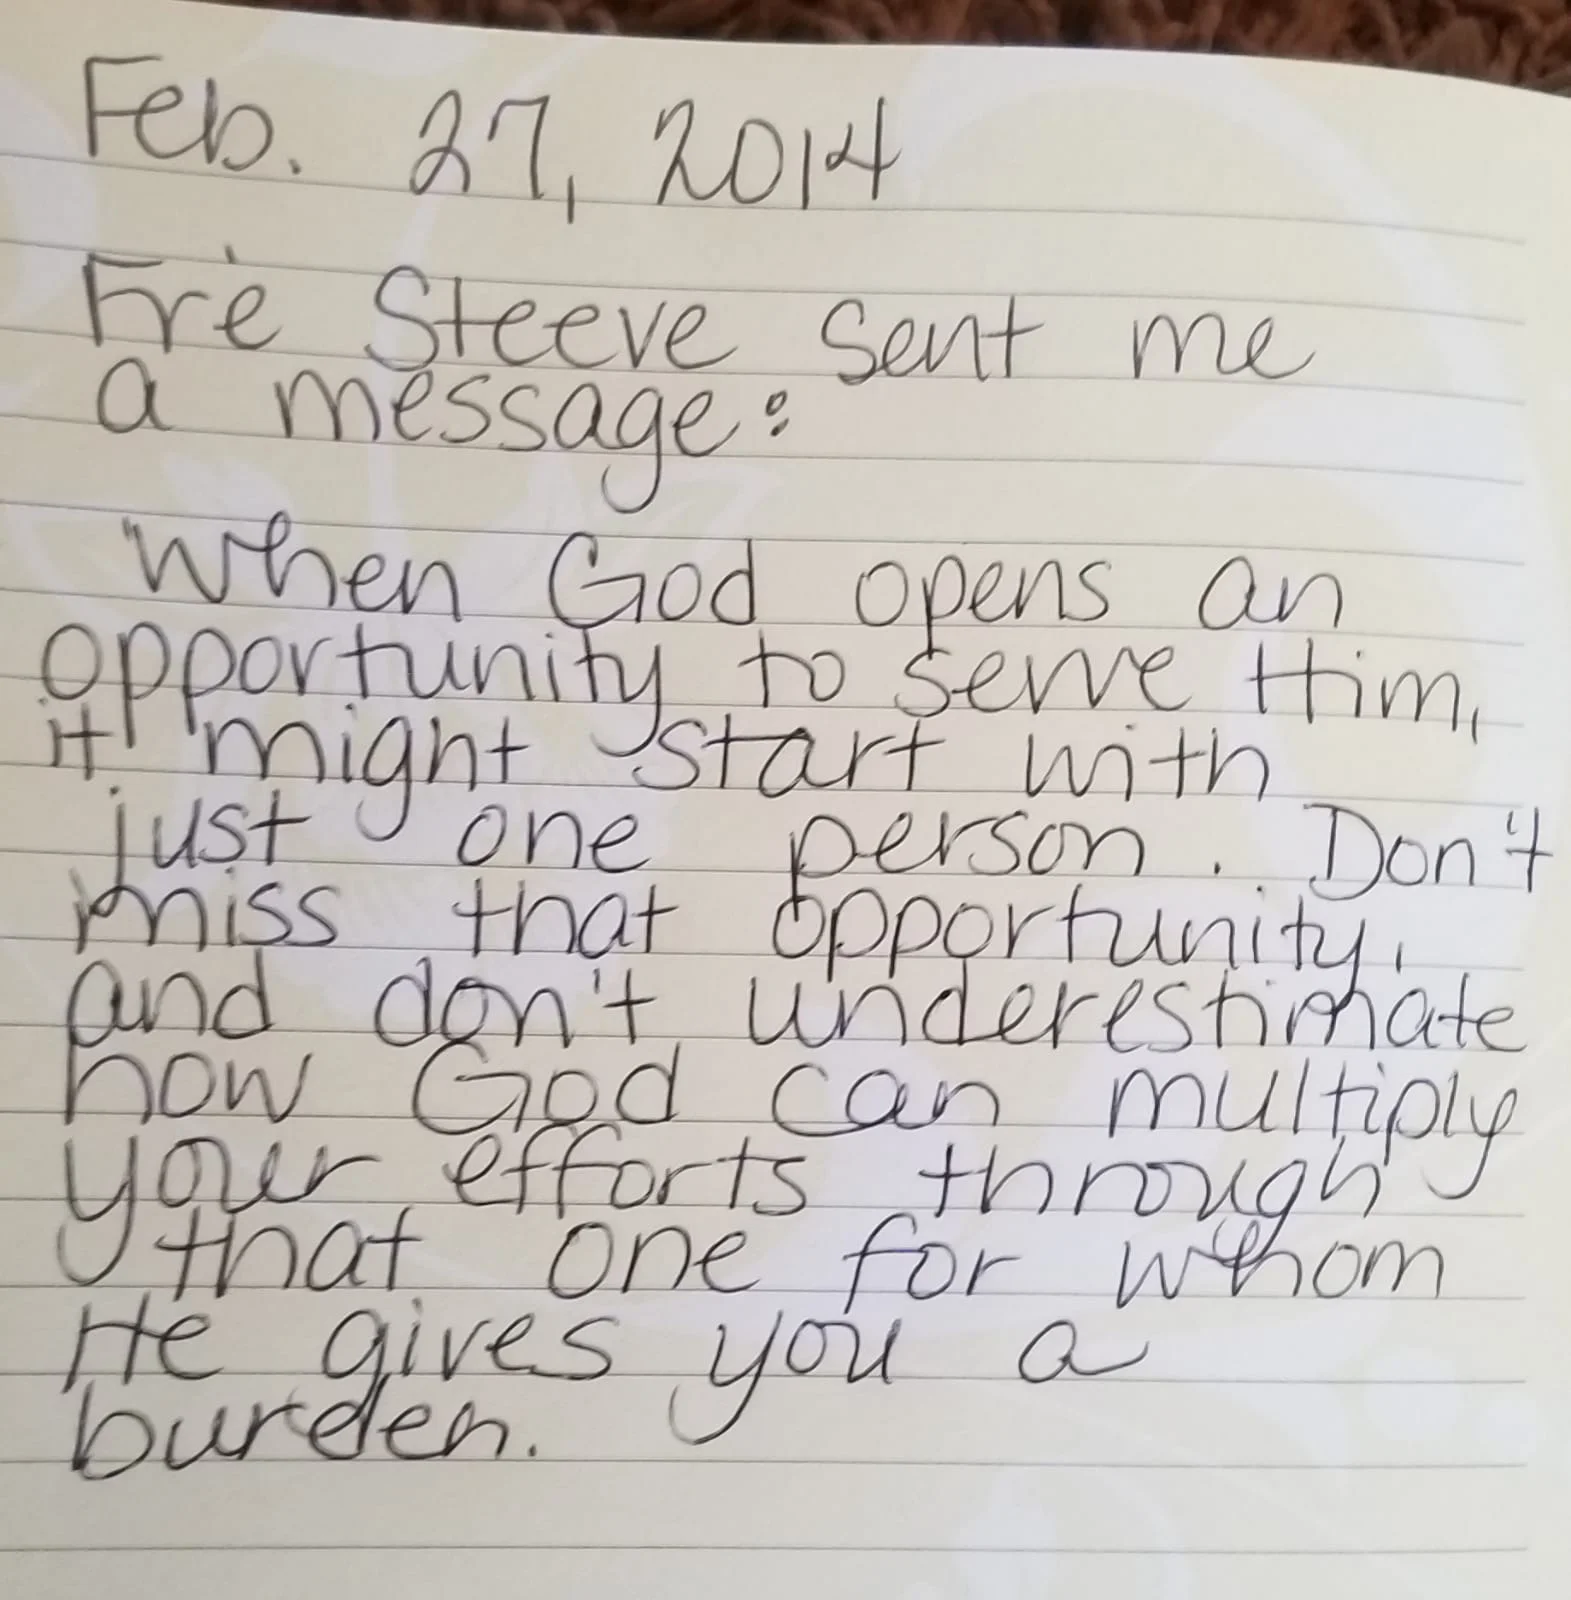 Feb. 27, 2014
Frè Steeve sent me
a message:
"When God opens an
opportunity to serve Him,
it might start with
just one person. Don't
miss that opportunity,
and don't underestimate
how God can multiply
your efforts through
that one for whom
He gives you a
burden.